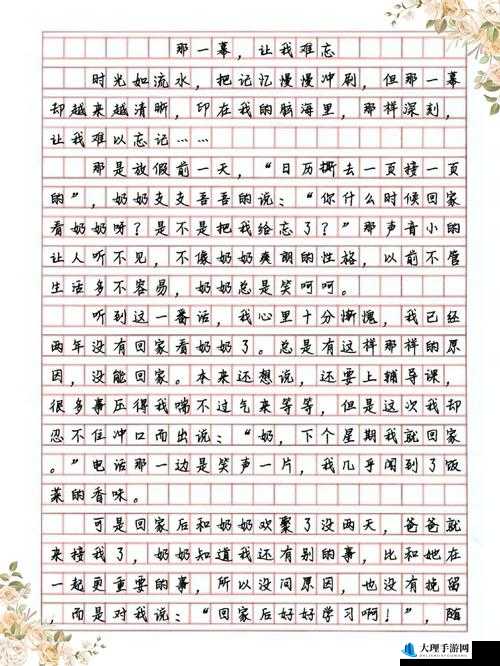 那一幕，让我难忘
时光如流水，把记忆慢慢冲刷，但那一幕
却越来越清晰，印在我的脑海里，那样深刻，
让我难以忘记……
那是放假前一天，“日历撕去一页接一页
的”，奶奶支支吾吾的说：“你什么时候回家
看奶奶呀？是不是把我给忘了？”那声音小的
让人听不见，不像奶奶爽朗的性格，以前不管
生活多不容易，奶奶总是笑呵呵。
听到这一番话，我心里十分惭愧，我已经
两年没有回家看奶奶了。总是有这样那样的原
因，没能回家。本来还想说，还要上辅导课，
很多事压得我喘不过气来等等，但是这次我却
忍不住冲口而出说：“奶，下个星期我就回家
。”电话那一边是笑声一片，我几乎闻到了饭
菜的香味。
可是回家后和奶奶欢聚了没两天，爸爸就
来接我了，奶奶知道我还有别的事，比和她在
一起更重要的事，所以没问原因，也没有挽留
，而是对我说：“回家后好好学习啊！”，随
大理手游网